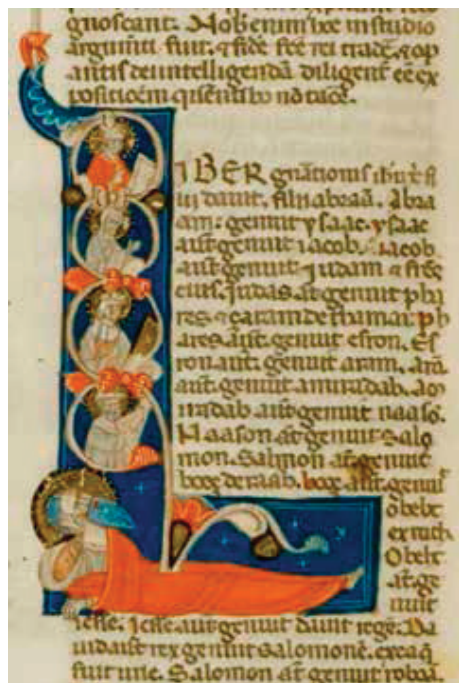 gnoscant. Nobis enim hoc in studio
argumti fuit. ⁊ fidē fcē rei tradē. ⁊ op
antis dei intelligendā diligent eē ex
positioēm q̄rentibꝰ nō tacē.
LIBER gnātionis ihū xp̄i
filii dauit. filii abraā. Abra
am. genuit ysaac. ysaac
aūt genuit iacob. iacob
aūt genuit iudam ⁊ frēs
eius. Iudas āt genuit pha
res ⁊ çaram de thamar. ph
ares aūt. genuit esron. Es
ron aūt. genuit aram. arā
aūt. genuit aminadab. am
inadab aūt genuit naasō.
Naason āt genuit salo
mon. Salmon āt. genuit
booç de raab. booç aūt. genuit
obeht
ex ruth.
Obeht
āt. ge
nuit
iesse. Iesse. aūt genuit dauit regē. Da
uid aūt rex genuit salomonē. ex ea q̄
fuit urie. Salomon āt genuit roboā.